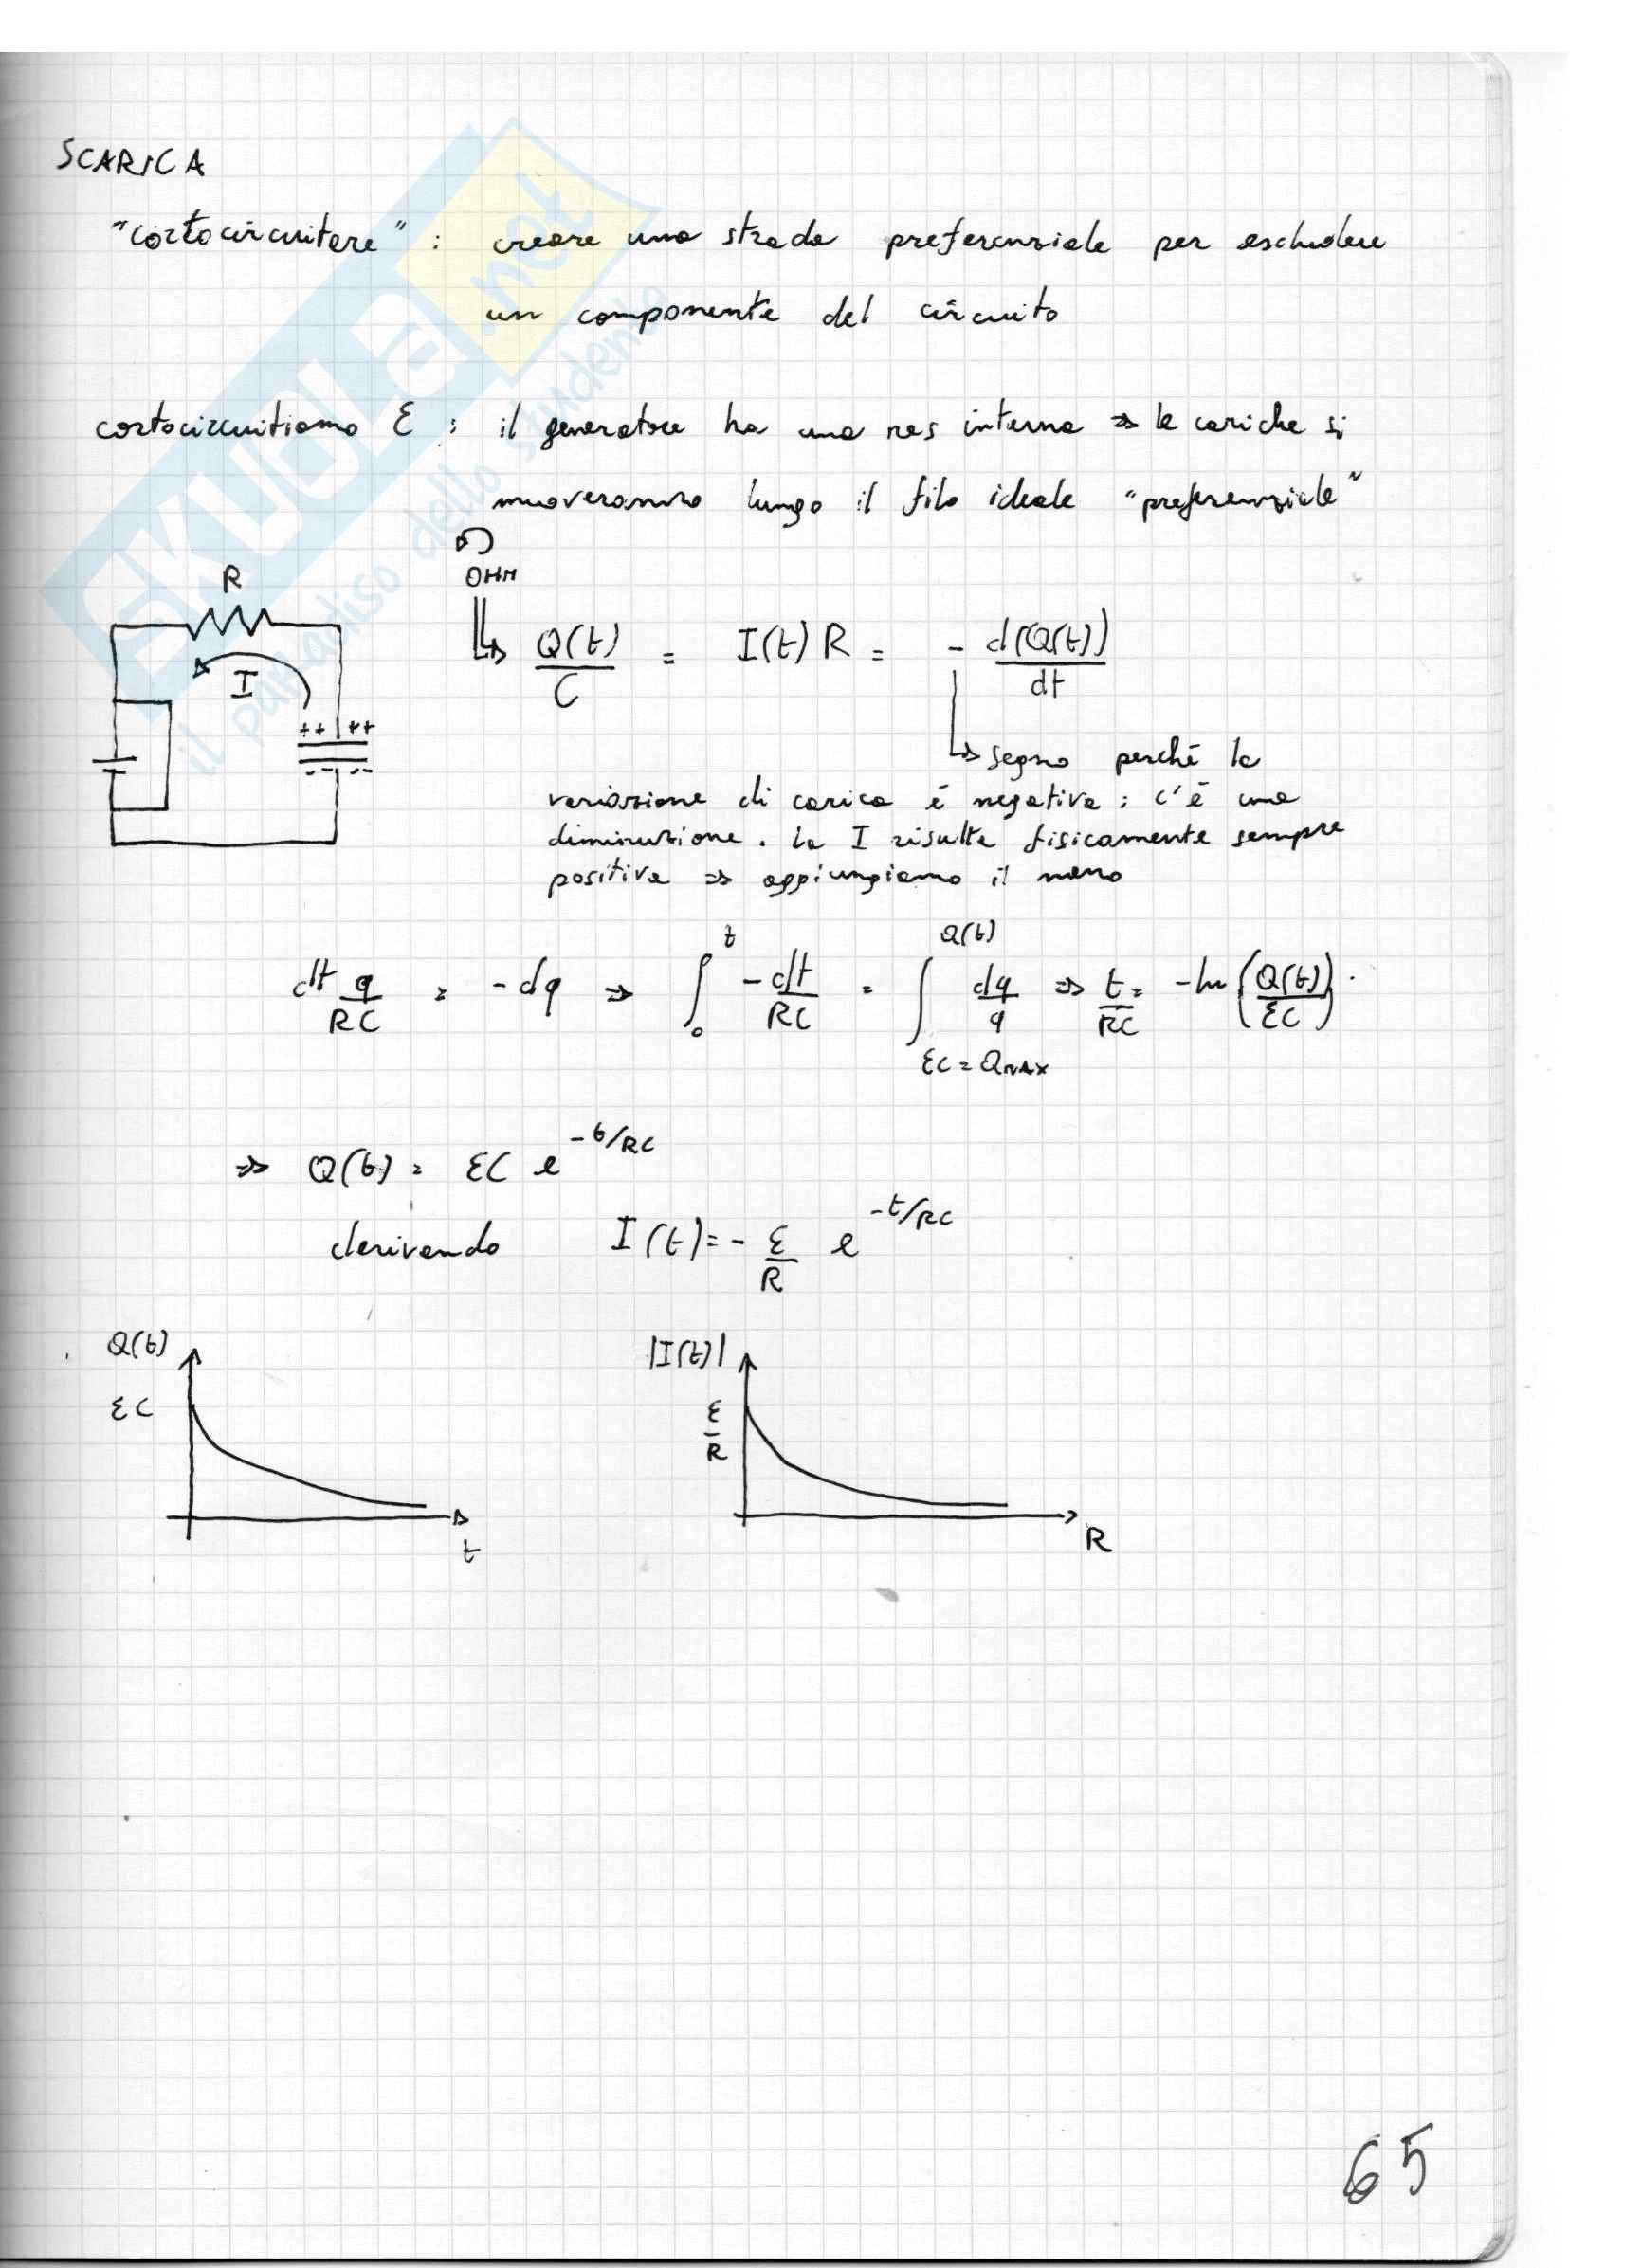 SCARICA
"cortocircuitare" : creare una strada preferenziale per escludere
un componente del circuito
cortocircuitiamo ε : il generatore ha una res interna => le cariche si
muoveranno lungo il filo ideale "preferenziale"
OHM
R
I
++ ++
-- --
Q(t)/C = I(t) R = - d(Q(t))/dt
segno perché la
variazione di carica è negativa : c'è una
diminuzione . La I risulta fisicamente sempre
positiva => aggiungiamo il meno
dt q/RC = - dq => ∫₀^t -dt/RC = ∫_{εC = QMAX}^{Q(t)} dq/q => t/RC = -ln (Q(t)/εC) .
=> Q(t) = εC e^{-t/RC}
derivando I(t) = - ε/R e^{-t/RC}
Q(t)
εC
t
|I(t)|
ε/R
R
65
SKUOLA.net
il paradiso dello studente